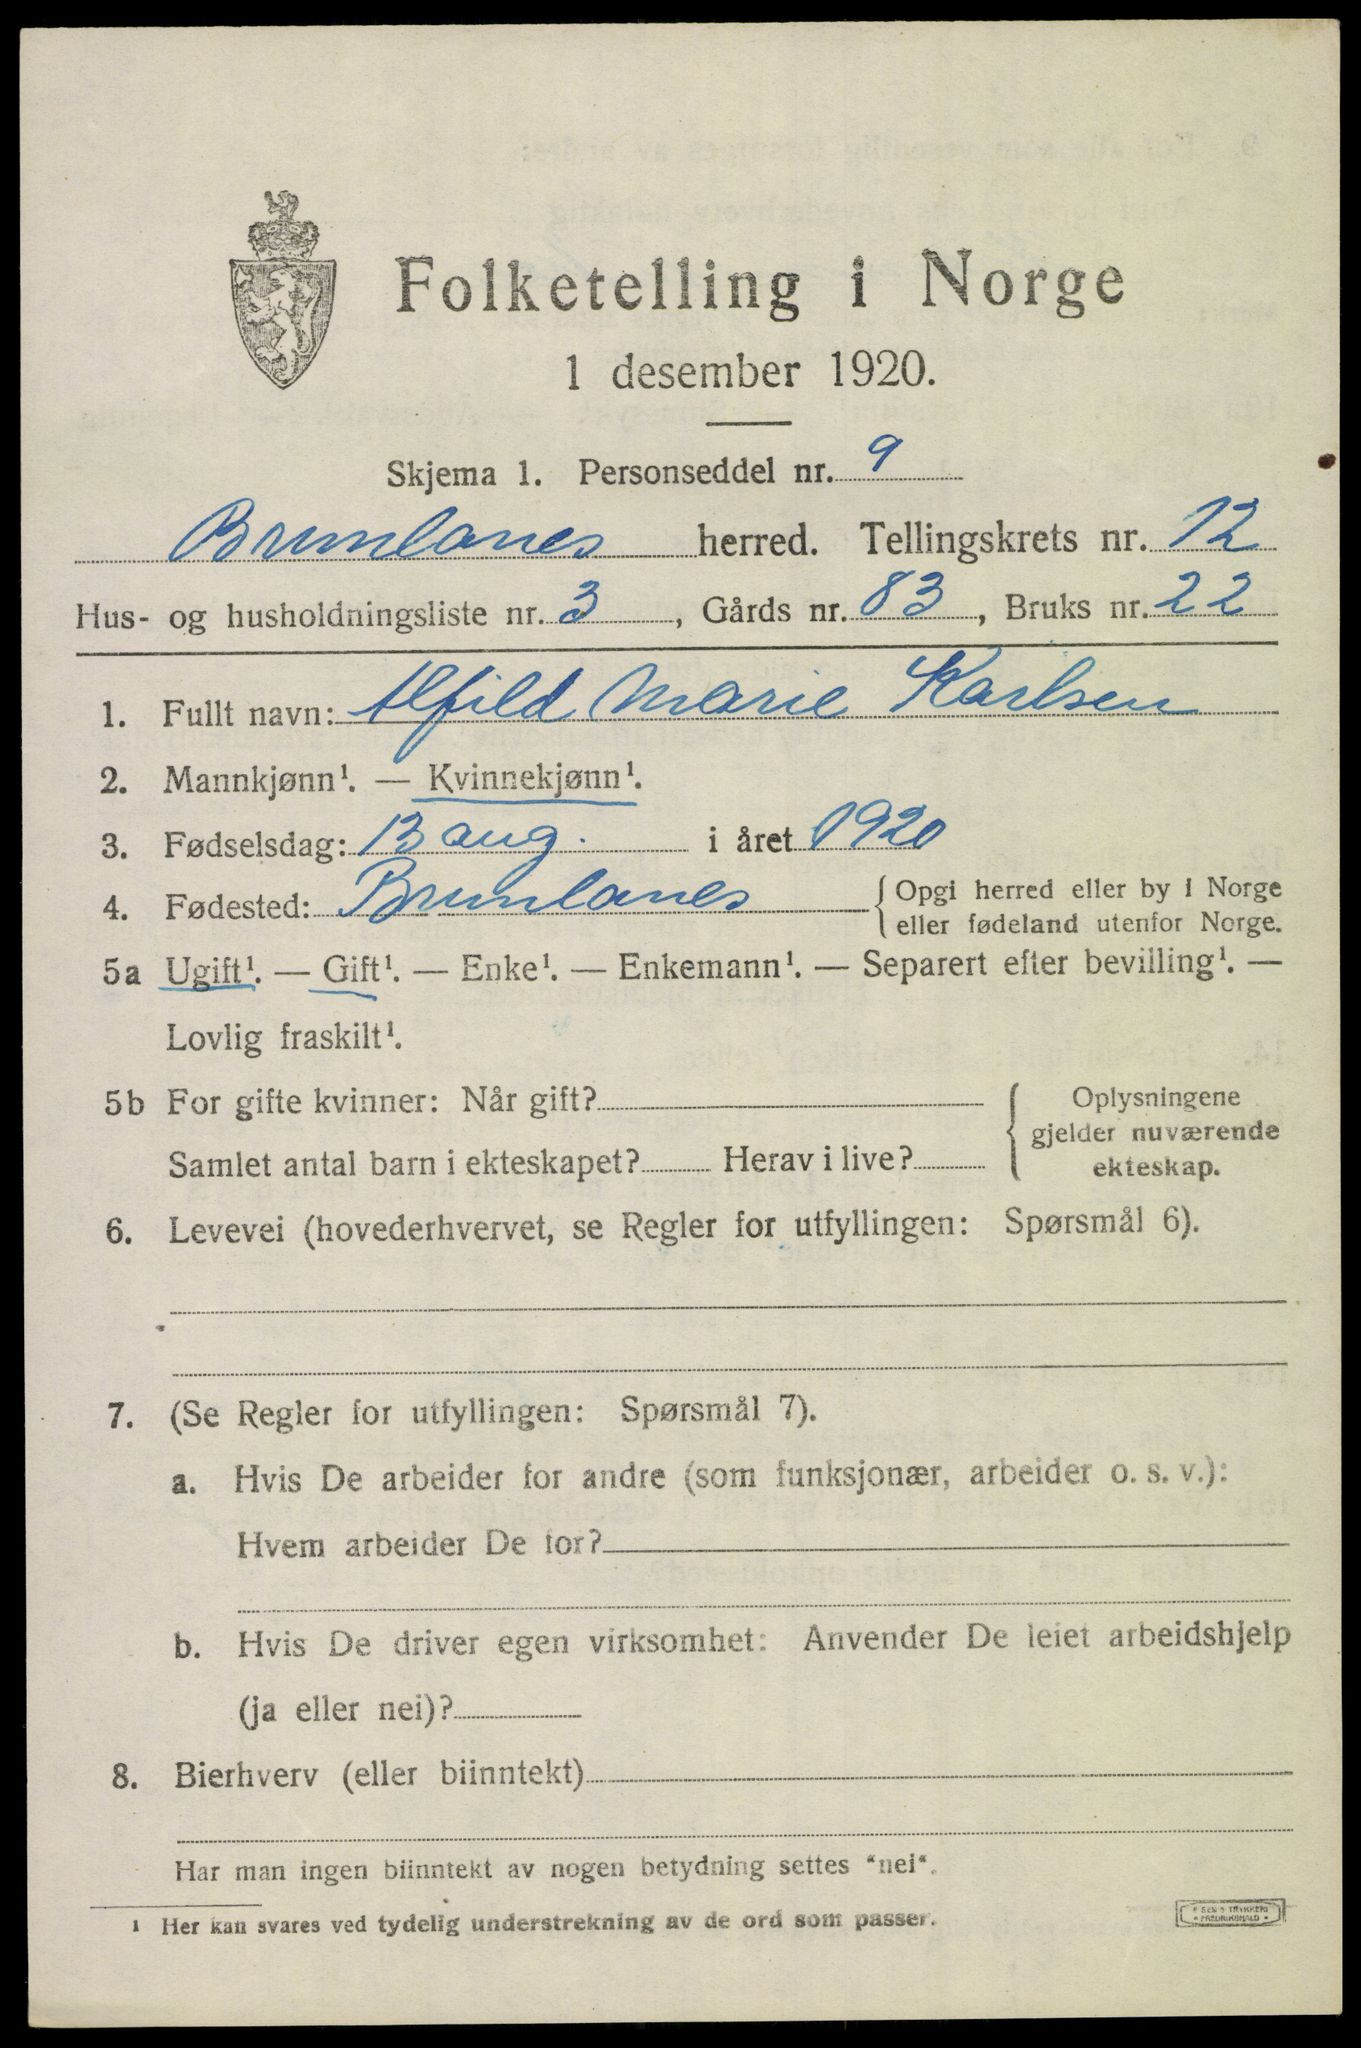 Folketelling i Norge
1 desember 1920.
Skjema 1. Personseddel nr. 9
Brunlanes herred. Tellingskrets nr. 12
Hus- og husholdningsliste nr. 3, Gårds nr. 83, Bruks nr. 22
1. Fullt navn: Alfild Marie Karlsen
2. Mannkjønn¹. — Kvinnekjønn¹.
3. Fødselsdag: 13 aug. i året 1920
4. Fødested: Brunlanes { Opgi herred eller by i Norge
eller fødeland utenfor Norge.
5a Ugift¹. — Gift¹. — Enke¹. — Enkemann¹. — Separert efter bevilling¹. —
Lovlig fraskilt¹.
5b For gifte kvinner: Når gift?
Samlet antal barn i ekteskapet? Herav i live?
{ Oplysningene
gjelder nuværende
ekteskap.
6. Levevei (hovederhvervet, se Regler for utfyllingen: Spørsmål 6).
7. (Se Regler for utfyllingen: Spørsmål 7).
a. Hvis De arbeider for andre (som funksjonær, arbeider o. s. v.):
Hvem arbeider De for?
b. Hvis De driver egen virksomhet: Anvender De leiet arbeidshjelp
(ja eller nei)?
8. Bierhverv (eller biinntekt)
Har man ingen biinntekt av nogen betydning settes "nei".
¹ Her kan svares ved tydelig understrekning av de ord som passer.
TRYKKERI
FREDRIKSHALD